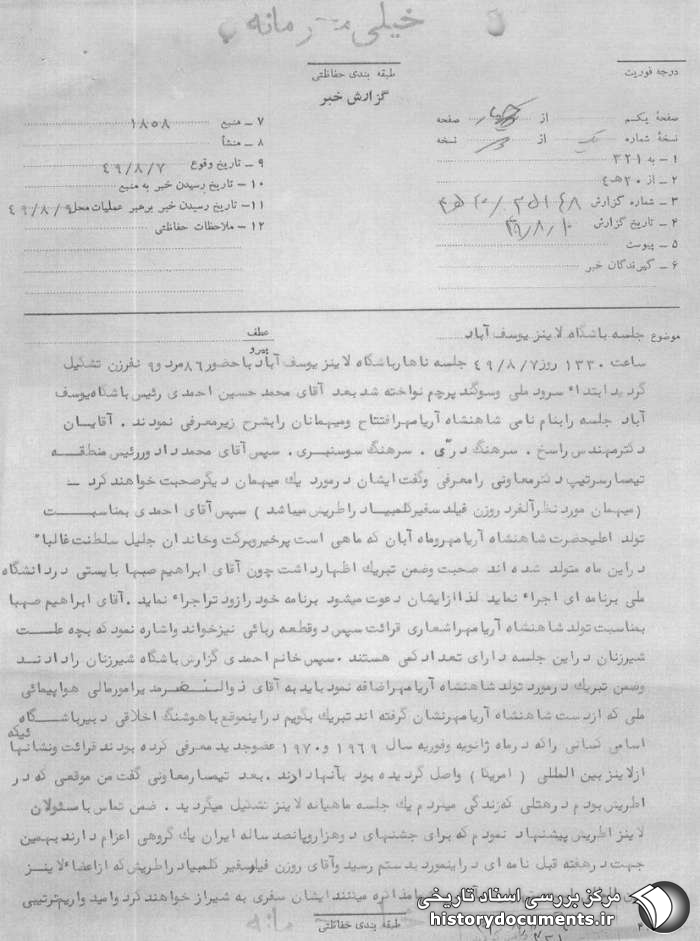 خیلی محرمانه
درجه فوریت
طبقه بندی حفاظتی
گزارش خبر
صفحه یکم از صفحه
نسخه شماره یک از نسخه
۱ ـ به ۳۲۱
۲ ـ از ۲۰ هـ ۴
۳ ـ شماره گزارش
۴ ـ تاریخ گزارش ۴۹/۸/۱۰
۵ ـ پیوست
۶ ـ گیرندگان خبر
۷ ـ منبع ۱۸۵۸
۸ ـ منشأ
۹ ـ تاریخ وقوع ۴۹/۸/۷
۱۰ ـ تاریخ رسیدن خبر به منبع
۱۱ ـ تاریخ رسیدن خبر برهبر عملیات محل ۴۹/۸/۹
۱۲ ـ ملاحظات حفاظتی
موضوع جلسه باشگاه لاینز یوسف آباد
عطف
پیرو
ساعت ۱۳۳۰ روز ۴۹/۸/۷ جلسه ناهار باشگاه لاینز یوسف آباد با حضور ۸۶ مرد و ۹ نفرزن تشکیل
گردید ابتداء سرود ملی وسوگند پرچم نواخته شد بعد آقای محمد حسین احمدی رئیس باشگاه یوسف
آباد جلسه را بنام نامی شاهنشاه آریامهر افتتاح ومیهمانان را بشرح زیر معرفی نمودند . آقایان
دکتر مهندس راسخ . سرهنگ درّی . سرهنگ سوسنبری . سپس آقای محمد داد ور رئیس منطقه
تیمسار سرتیپ دکتر معاونی را معرفی وگفت ایشان در مورد یك میهمان دیگر صحبت خواهند کرد ـ
(میهمان مورد نظر آلفرد روزن فیلد سفیر کلمبیا در اطریش میباشد ) سپس آقای احمدی بمناسبت
تولد اعلیحضرت شاهنشاه آریامهر وماه آبان که ماهی است پر خیر وبرکت وخاندان جلیل سلطنت غالباً
در این ماه متولد شده اند صحبت وضمن تبریك اظهار داشت چون آقای ابراهیم صهبا بایستی در دانشگاه
ملی برنامه ای اجراء نماید لذا از ایشان دعوت میشود برنامه خود را زود تر اجراء نماید .آقای ابراهیم صهبا
بمناسبت تولد شاهنشاه آریامهر اشعاری قرائت سپس دو قطعه رباعی نیز خواند واشاره نمود که بچه علت
شیر زنان در این جلسه دارای تعداد کمی هستند .سپس خانم احمدی گزارش باشگاه شیر زنان را دادند
وضمن تبریك در مورد تولد شاهنشاه آریامهر اضافه نمود باید به آقای ذوالنصر مدیر امور مالی هواپیمائی
ملی که از دست شاهنشاه آریامهر نشان گرفته اند تبریك بگویم در اینموقع باهوشنگ اخلاقی دبیر باشگاه
اسامی کسانی را که در ماه ژانویه وفوریه سال ۱۹۶۹ و ۱۹۷۰ عضو جدید معرفی کرده بودند قرائت ونشانهائیکه
از لاینز بین المللی ( امریکا ) واصل گردیده بود بآنها دادند . بعد تیمسار معاونی گفت من موقعی که در
اطریش بودم در هتلی که زندگی میکردم یك جلسه ماهیانه لاینز تشکیل میگردید . ضمن تماس با مسئولان
لاینز اطریش پیشنهاد نمودم که برای جشنهای دوهزار وپانصد ساله ایران یك گروهی اعزام دارند بهمین
جهت در هفته قبل نامه ای در اینمورد بدستم رسید وآقای روزن فیلد سفیر کلمبیا در اطریش که از اعضاء لاینز
مذاکره میکنند ایشان سفری به شیراز خواهند کرد وامید واریم ترتیبی
طبقه بندی حفاظتی
مرکز بررسی اسناد تاریخی
historydocuments.ir